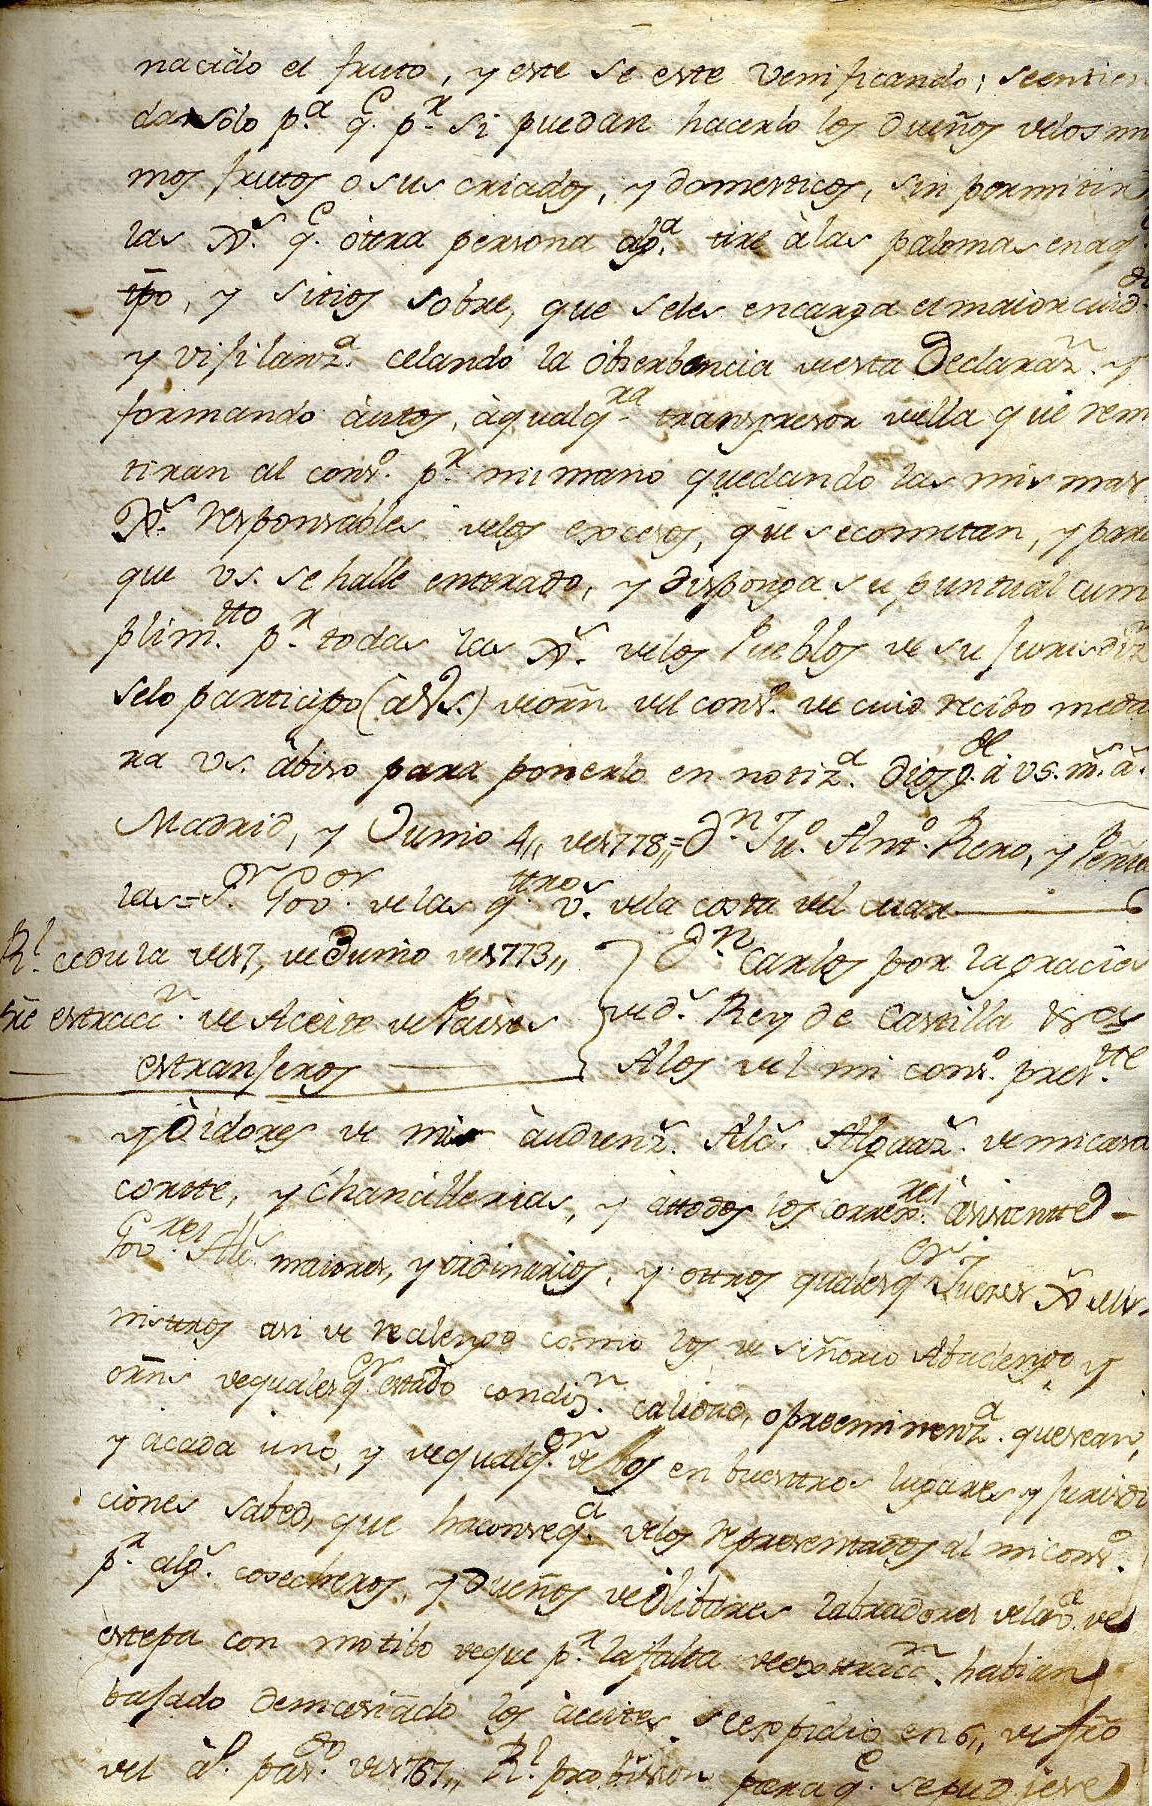 nacido el fruto, y este se este Venificando; seentien
dan solo p.ª q.e p.r si puedan hacerlo los Dueños delos mis
mos frutos o sus criados, y domesticos, sin permitir
las Xs. q.e ôttra persona alg.ª tire à las palomas en aq.l
tpo, y sitios sobre, que seles encarga el maior cuid.do
y vijilanz.ª celando la ôbserbencia desta Declaraz.n y
formando áutos, àqualq.ra transgresor della que remi
tiran al cons.º p.r mi mano quedando las mismas
Xs. responsables delos excesos, que se cometan, y para
que VS. se halle enterado, y disponga su puntual cum
plim.tto p.r todas las Xs. delos Pueblos de su jurisdiz.n
selo participo (à VS.) deorñ del cons.º de cuio recibo me da
ra VS. àbiso para ponerlo en notiz.ª Dios g.de à VS. m.s a.s
Madrid, y Junio 4,, de1778,,= D.n Ju.º Ant.º Rero, y Peñue
las = S.or Gov.or delas q.ttro v.s dela costa del mar
R.l cedula de17, deJunio de1773,,
sre extracc.n de Aceite de Paises
estranjeros
D.n Carlos por la gracia
de D.s Rey de Castilla &.ª
Alos del mi cons.º pres.tte
y Oidores de mis àudienz.s Alc.s Alguaz.s de mi casa
cortte, y chancillerias, y àttodos los corre.res asistentte
Gov.res Alc.s maiores, y ordinarios, y ottros qualesq.er Jueces Xs. Mi
nisttros asi de realengo como los de señorio Abadengo, y
orñs dequalesq.er estado condiz.n calidad, o preeminenz.ª quesean,
y àcada uno, y dequalq.er de bos en buesttros lugares y jurisdi
ciones sabed, que haconseq.ª delos representados al mi cons.º
p.r alg.s cosecheros, y Dueños de Olibares labradores dela v.ª de
estepa con motibo deque p.r la falta de extracc.n habian
bajado demasiado los àceites, se expidio en 6,, de fro
del a.º pas.do de1767,, R.l probision para q.e se pudiese